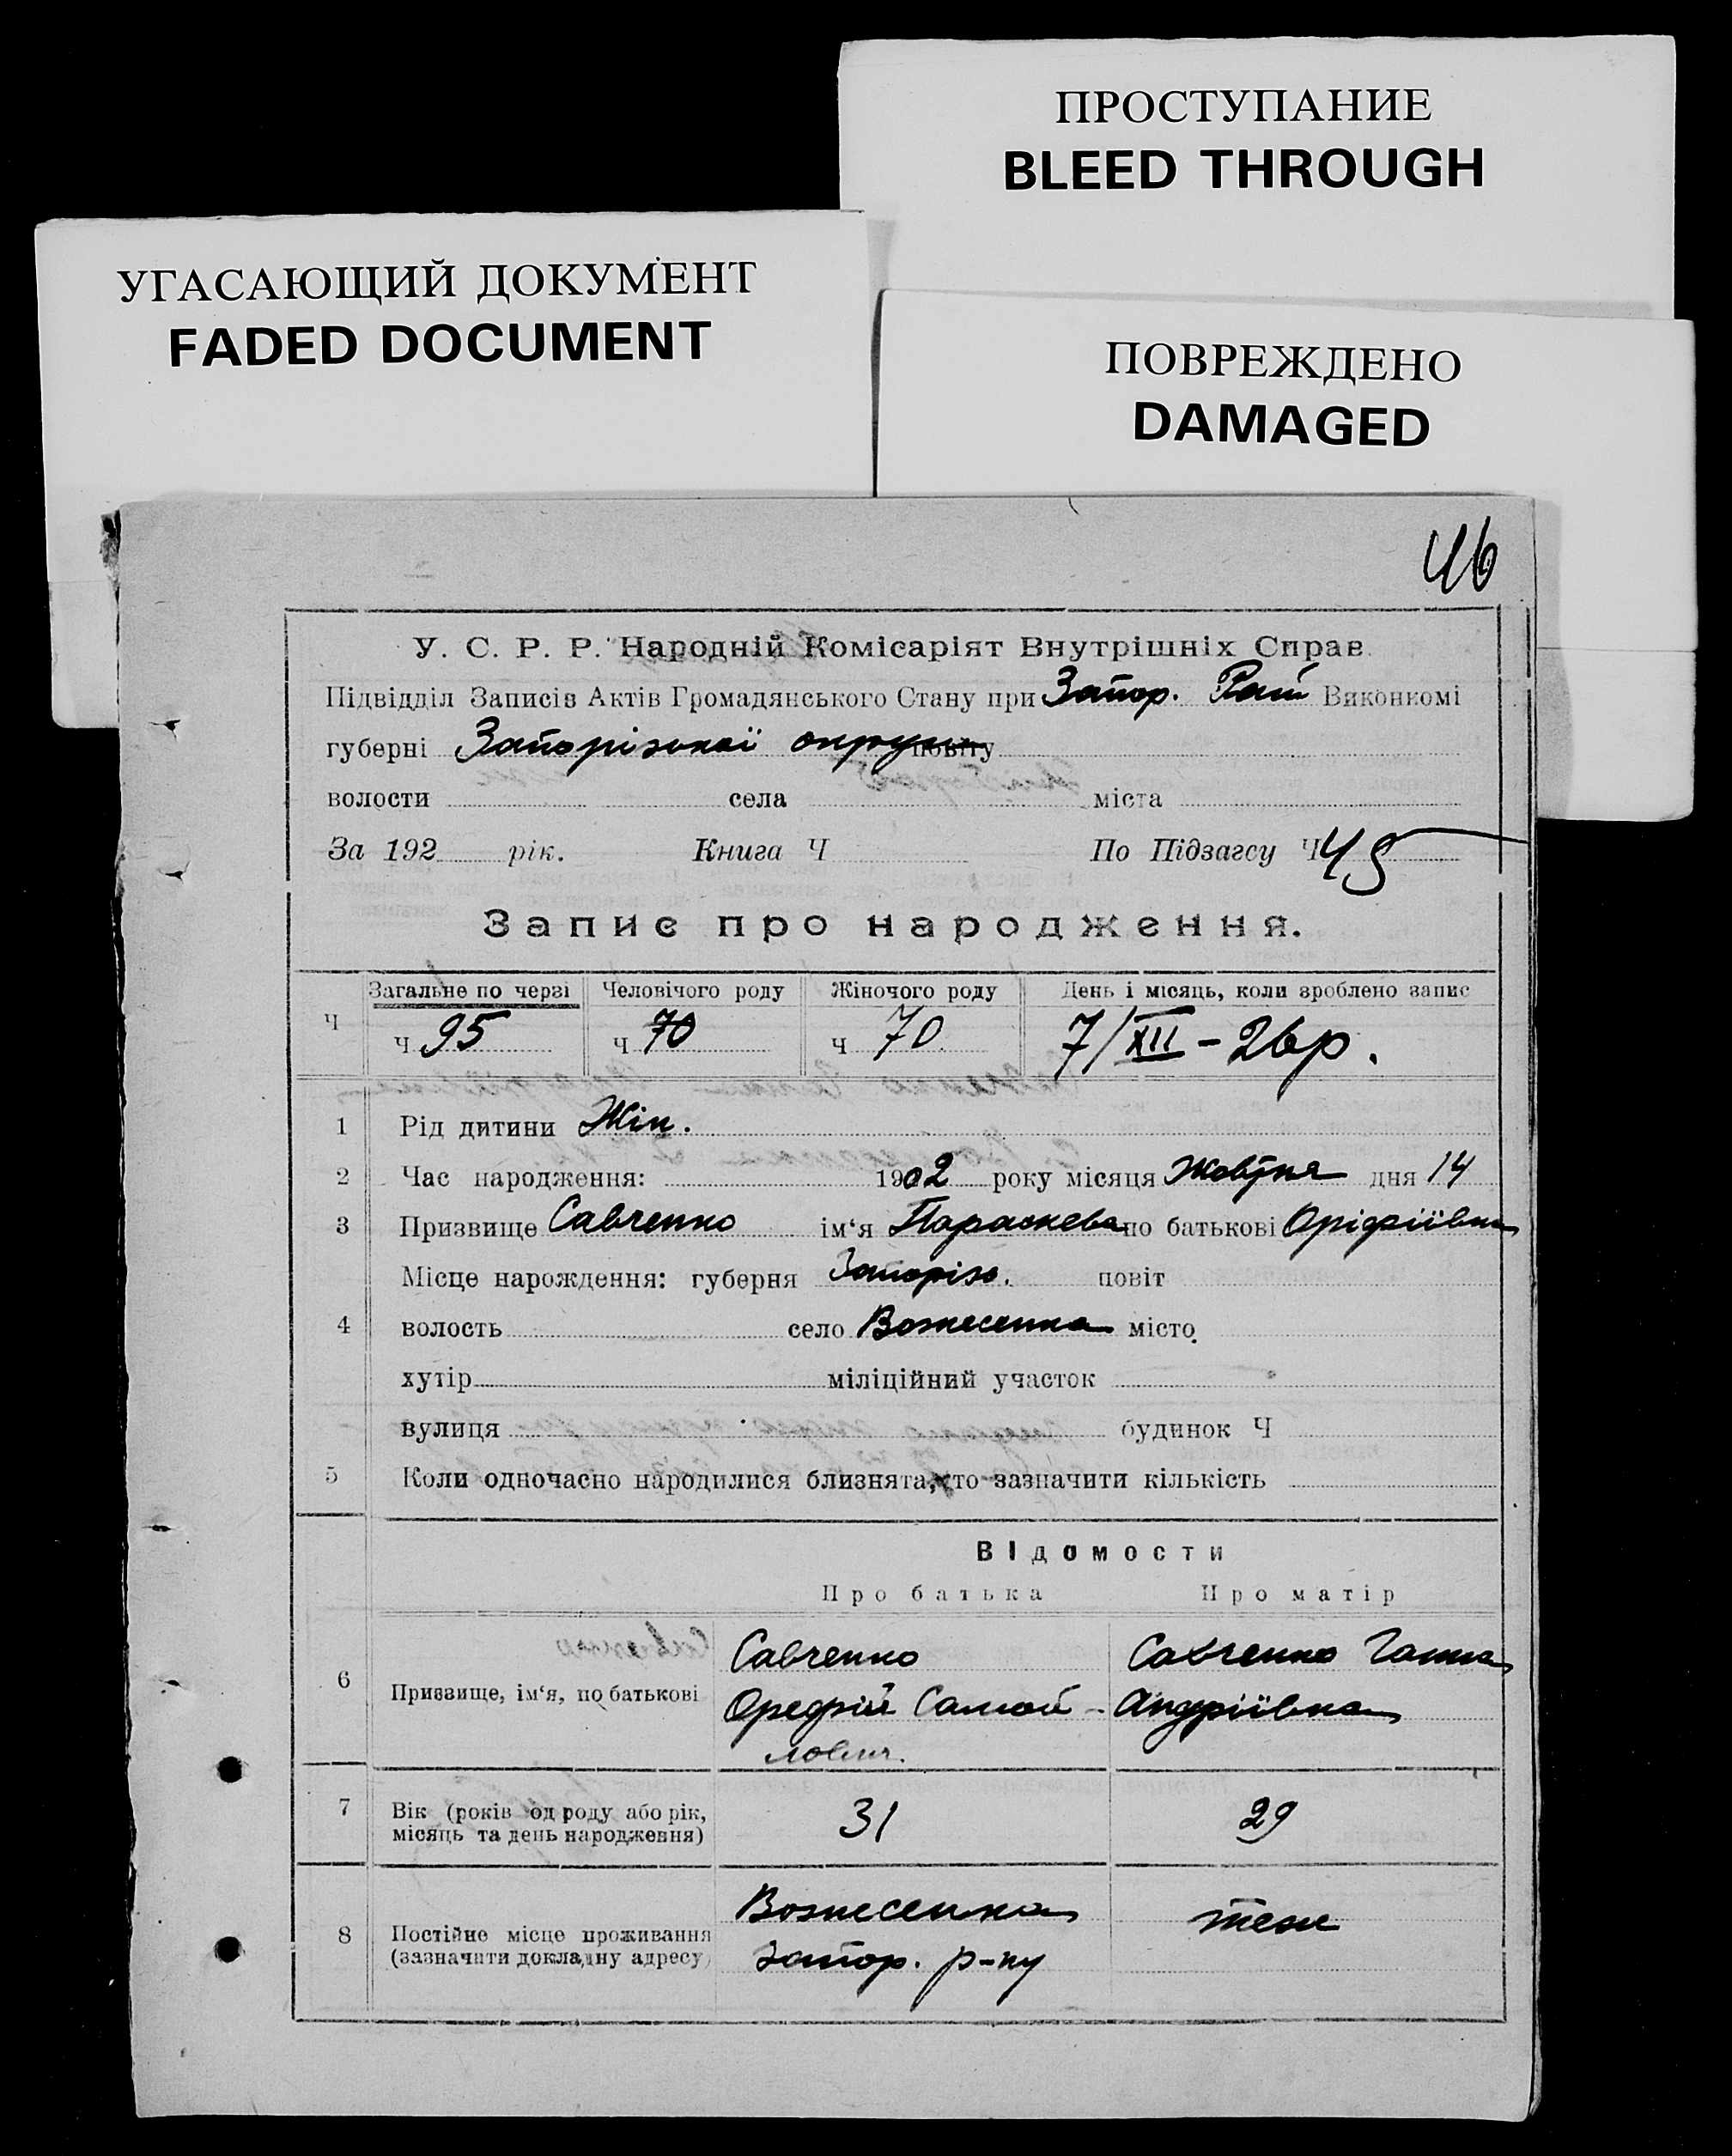 ПРОСТУПАНИЕ
BLEED THROUGH
УГАСАЮЩИЙ ДОКУМЕНТ
FADED DOCUMENT
ПОВРЕЖДЕНО
DAMAGED
46
У. С. Р. Р. Народній Комісаріят Внутрішніх Справ.
Підвідділ Записів Актів Громадянського Стану при Запор. Рай Виконкомі
губерні Запорізької округи повіту
волости села міста
За 192 рік. Книга Ч По Підзагсу Ч 45
Запис про народження.
Ч Загальне по черзі Человічого роду Жіночого роду День і місяць, коли зроблено запис
ч 95 ч 70 ч 70 7/XII – 26 р.
1 Рід дитини Жін.
2 Час народження: 1902 року місяця Жовтня дня 14
3 Призвище Савченко ім‘я Параскева по батькові Орідріївна
Місце нарождення: губерня Запоріз. повіт
4 волость село Вознесенка місто
хутір міліційний участок
вулиця будинок Ч
5 Коли одночасно народилися близнята, то зазначити кількість
Відомости
Про батька Про матір
Савченко Савченко Ганна
6 Призвище, ім‘я, по батькові Оредрій Самой- Андріївна
лович.
7 Вік (років од роду або рік, місяць та день народження) 31 29
Вознесенка теж
8 Постійне місце проживання (зазначити докладну адресу) Запор. р-ну